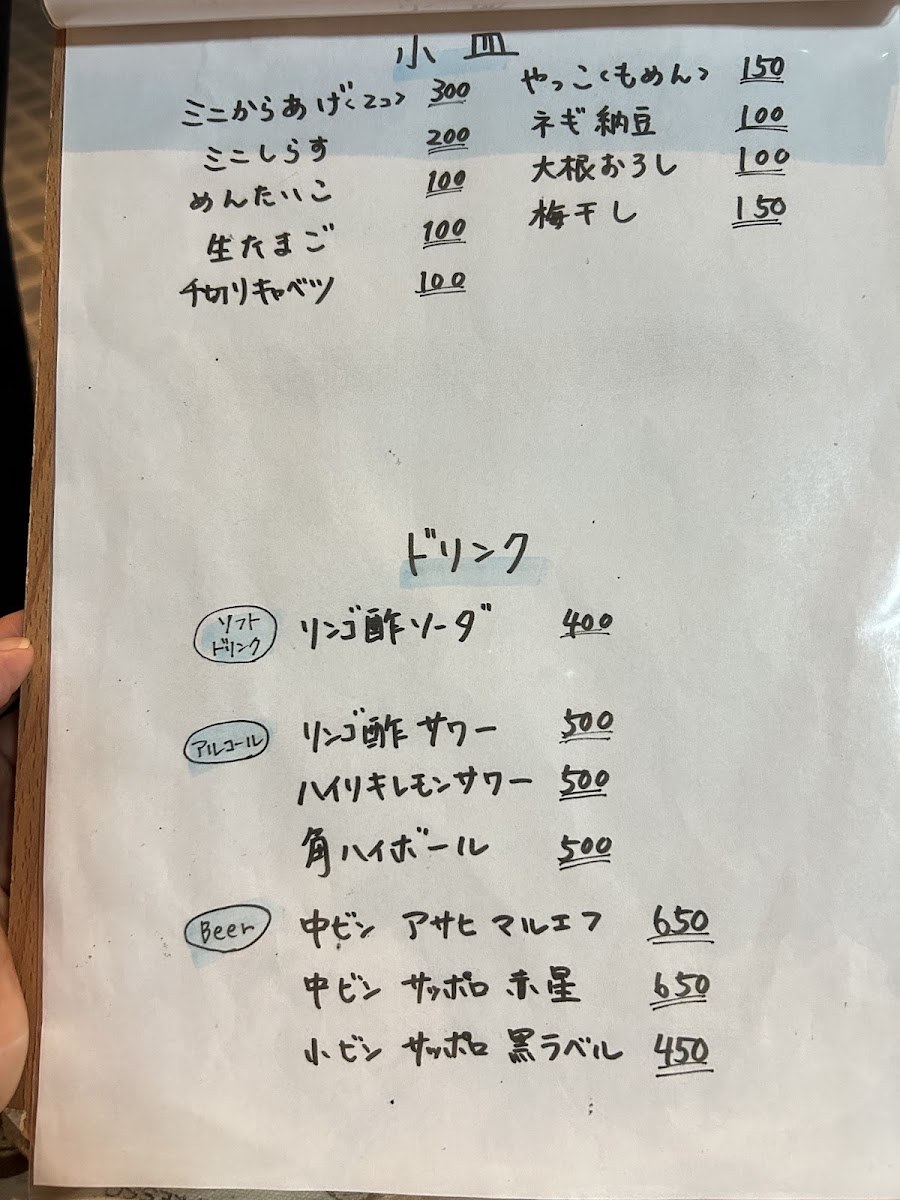 小皿
ミニからあげ<2コ> 300
ミニしらす 200
めんたいこ 100
生たまご 100
千切りキャベツ 100
やっこ<もめん> 150
ネギ納豆 100
大根おろし 100
梅干し 150
ドリンク
ソフト
ドリンク
リンゴ酢ソーダ 400
アルコール リンゴ酢サワー 500
ハイリキレモンサワー 500
角ハイボール 500
Beer 中ビン アサヒ マルエフ 650
中ビン サッポロ 赤星 650
小ビン サッポロ 黒ラベル 450